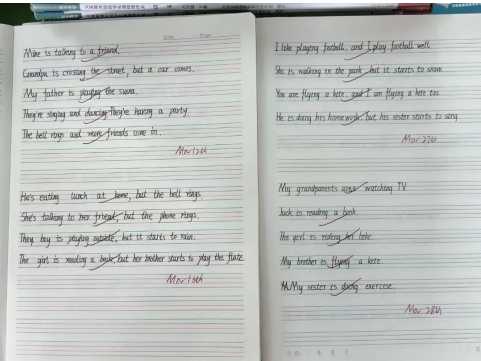 Mike is talking to a friend.
Grandpa is crossing the street, but a car comes.
My father is playing the suona.
They're singing and dancing. They're having a party.
The bell rings and many friends come in.
Mar 12th
He's eating lunch at home, but the bell rings.
She's talking to her friend, but the phone rings.
They boy is playing outside, but it starts to rain.
The girl is reading a book, but her brother starts to play the flute.
Mar 18th
I like playing football, and I play football well.
She is walking in the park, but it starts to snow.
You are flying a kite, and I am flying a kite too.
He is doing his homework, but his sister starts to sing.
Mar 22th
My grandparents are watching TV
Jack is reading a book.
The girl is riding her bike.
My brother is flying a kite.
My sister is doing exercise.
Mar 28th